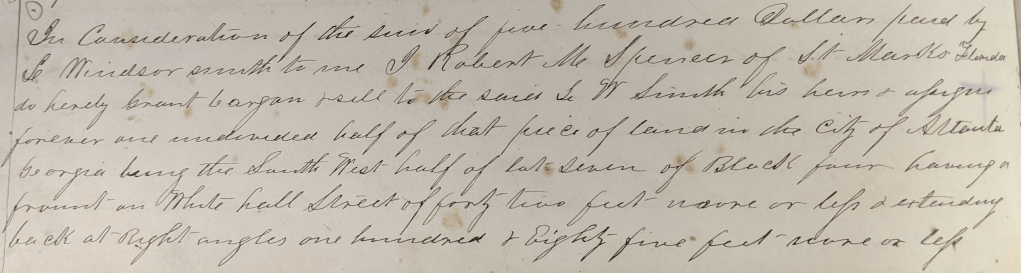 In Consideration of the sum of five hundred Dollars paid by
Le Windsor smith to me I Robert M Spencer of St Marks Florida
do hereby Grant bargan & sell to the said Le W Smith his heirs & assigns
forever one undivided half of that piece of land in the City of Atlanta
Georgia being the South West half of lot seven of Block four having a
frount on White hall Street of forty two feet more or less & extending
back at Right angles one hundred & Eighty five feet more or less